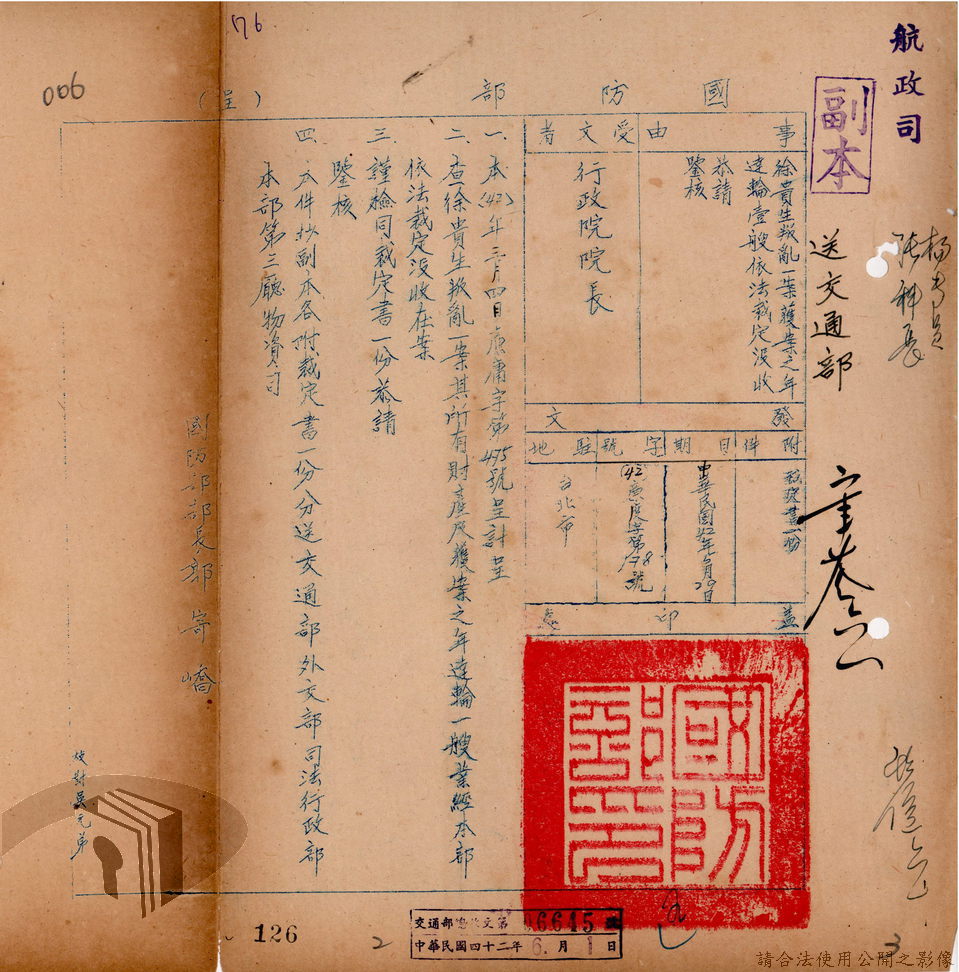 航政司
副本
送交通部
楊專員
張科長
076
006
國防部(呈)
事由
徐貴生叛亂一案獲案之年
達輪壹艘依法裁定沒收
恭請
鑒核
受文者
行政院院長
發文
附件
裁定書一份
日期
中華民國42年 月29日
字號
(42)廉度字第178號
駐地
台北市
蓋印處
國防部印
一、本(42)年三月四日廉庸字第475號呈計呈
二、查徐貴生叛亂一案其所有財產及獲案之年達輪一艘業經本部
依法裁定沒收在案
三、謹檢同裁定書一份恭請
鑒核
四、本件抄副本各附裁定書一份分送交通部外交部司法行政部
本部第三廳物資司
國防部部長郭寄嶠
校對吳元弟
交通部總收文第06645號
中華民國四十二年6.月1日
126
2
3
請合法使用公開之影像